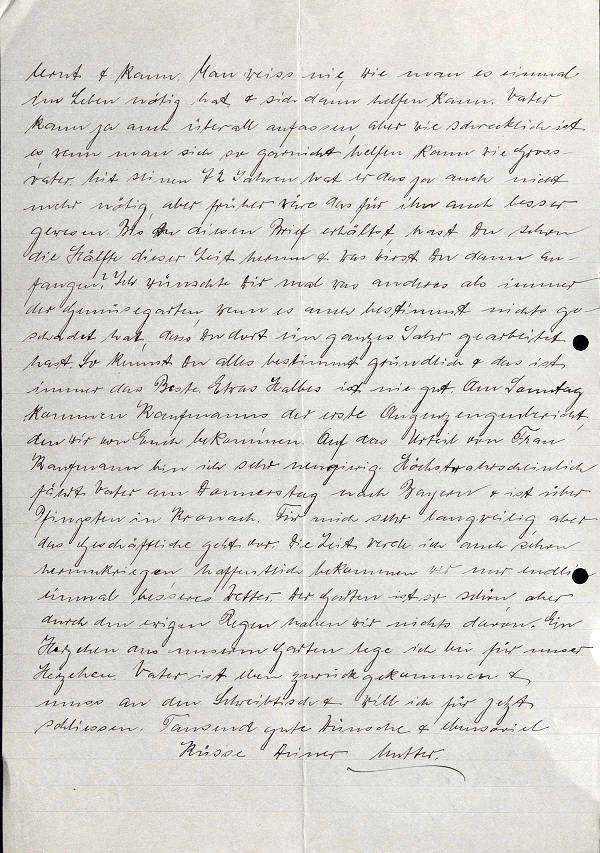 lernt & kann. Man weiss nie, wie man es einmal
im Leben nötig hat & sich dann helfen kann. Vater
kann ja auch überall anfassen, aber wie schrecklich ist
es, wenn man sich so garnicht helfen kann wie Gross-
vater. Mit seinen 72 Jahren hat er das ja auch nicht
mehr nötig, aber früher wäre das für ihn auch besser
gewesen. Bis Du diesen Brief erhältst, hast Du schon
die Hälfte dieser Zeit herum & was wirst Du dann an-
fangen? Ich wünschte Dir mal was anderes als immer
der Gemüsegarten, wenn es auch bestimmt nichts ge-
schadet hat, dass Du dort ein ganzes Jahr gearbeitet
hast. So kennst Du alles bestimmt gründlich & das ist
immer das Beste. Etwas Halbes ist nie gut. Am Sonntag
kommen Kaufmanns der erste Augenzeugenbericht,
den wir von Euch bekommen. Auf das Urteil von Frau
Kaufmann bin ich sehr neugierig. Höchstwahrscheinlich
fährt Vater am Donnerstag nach Bayern & ist über
Pfingsten in Kronach. Für mich sehr langweilig aber
das Geschäftliche geht vor. Die Zeit werde ich auch schon
herumkriegen, hoffentlich bekommen wir nur endlich
einmal besseres Wetter. Der Garten ist so schön, aber
durch den ewigen Regen haben wir nichts davon. Ein
Herzchen aus unserem Garten lege ich bei für unser
Herzchen. Vater ist eben zurückgekommen &
muss an den Schreibtisch & will ich für jetzt
schliessen. Tausend gute Wünsche & ebensoviel
Küsse Deiner Mutter.